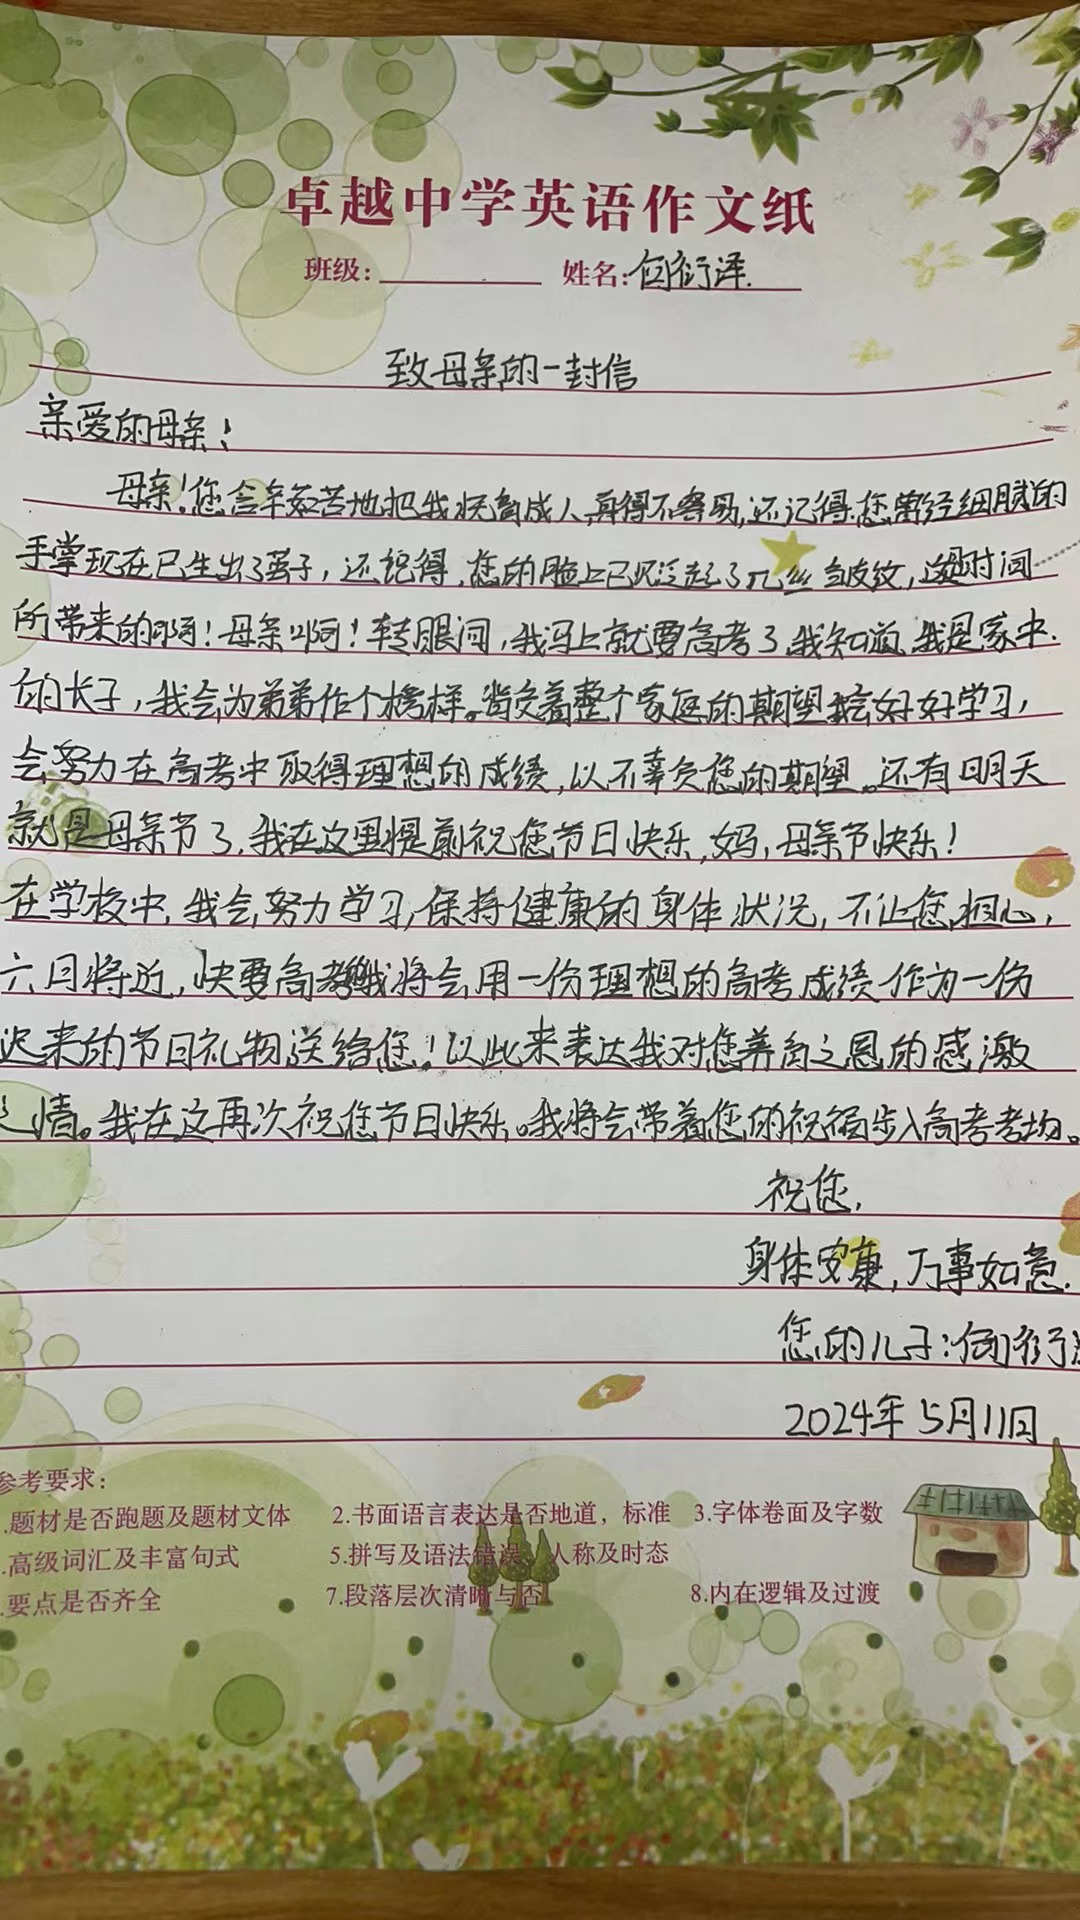 卓越中学英语作文纸
班级: 姓名: 何衍泽
致母亲的一封信
亲爱的母亲!
母亲!您含辛茹苦地把我抚育成人,真得不容易,还记得您曾经细腻的
手掌现在已生出了茧子,还记得,您的脸上已泛起了几丝皱纹,这是时间
所带来的啊!母亲啊!转眼间,我马上就要高考了,我知道,我是家中
的长子,我会为弟弟作个榜样。背负着整个家庭的期望我会好好学习,
会努力在高考中取得理想的成绩,以不辜负您的期望。还有明天
就是母亲节了,我在这里提前祝您节日快乐,妈,母亲节快乐!
在学校中,我会努力学习,保持健康的身体状况,不让您担心,
六日将近,快要高考我将会用一份理想的高考成绩作为一份
迟来的节日礼物送给您!以此来表达我对您养育之恩的感激
之情。我在这再次祝您节日快乐。我将会带着您的祝福步入高考考场。
祝您,
身体安康,万事如意.
您的儿子:何衍泽
2024年5月11日
参考要求:
.题材是否跑题及题材文体 2.书面语言表达是否地道,标准 3.字体卷面及字数
.高级词汇及丰富句式 5.拼写及语法错误、人称及时态
.要点是否齐全 7.段落层次清晰与否 8.内在逻辑及过渡